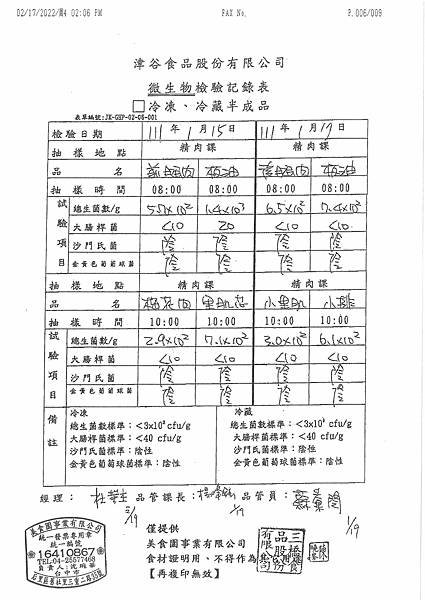 02/17/2022/週4 02:06 PM FAX No. P.006/009
津谷食品股份有限公司
微生物檢驗記錄表
□冷凍、冷藏半成品
表單編號:JK-GHP-02-05-001
檢驗日期 111年1月15日 111年1月17日
抽樣地點 精肉課 精肉課
品名
抽樣時間 08:00 08:00 08:00 08:00
試驗項目
總生菌數/g 5.5x10² 1.4x10³ 6.5x10² 7.4x10²
大腸桿菌 <10 20 <10 <10
沙門氏菌 陰 陰 陰 陰
金黃色葡萄球菌 陰 陰 陰 陰
抽樣地點 精肉課 精肉課
品名 梅花肉 里肌芯 小里肌 小排
抽樣時間 10:00 10:00 10:00 10:00
試驗項目
總生菌數/g 2.9x10² 7.1x10² 3.0x10² 6.1x10²
大腸桿菌 <10 <10 <10 <10
沙門氏菌 陰 陰 陰 陰
金黃色葡萄球菌 陰 陰 陰 陰
備註
冷凍
總生菌數標準:<3x10⁶ cfu/g
大腸桿菌標準:<40 cfu/g
沙門氏菌標準:陰性
金黃色葡萄球菌標準:陰性
冷藏
總生菌數標準:<3x10⁶ cfu/g
大腸桿菌標準:<40 cfu/g
沙門氏菌標準:陰性
金黃色葡萄球菌標準:陰性
經理: 品管課長: 品管員:
1/19
1/19
僅提供
美食園事業有限公司
食材證明用、不得作為
【再複印無效】
美食園事業有限公司
統一發票專用章
統一編號
16410867
TEL:04-25577468
台中市
三橋
食品股份
有限公司